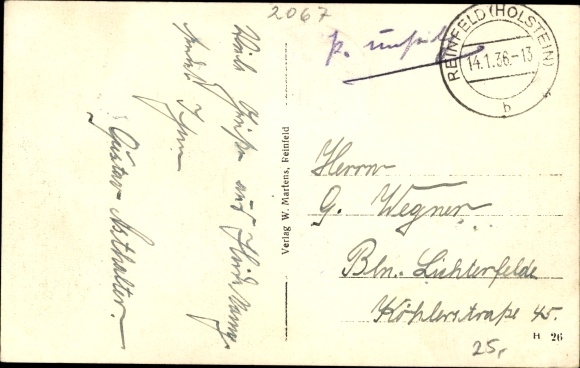 2067
REINFELD (HOLSTEIN)
14.1.36.-13
b
Viele Grüße aus
sendet Ihnen
Gustav
Verlag W. Martens, Reinfeld
Herrn
G. Wegner
Bln.-Lichterfelde
Köhlerstraße 45.
H 26
25,-